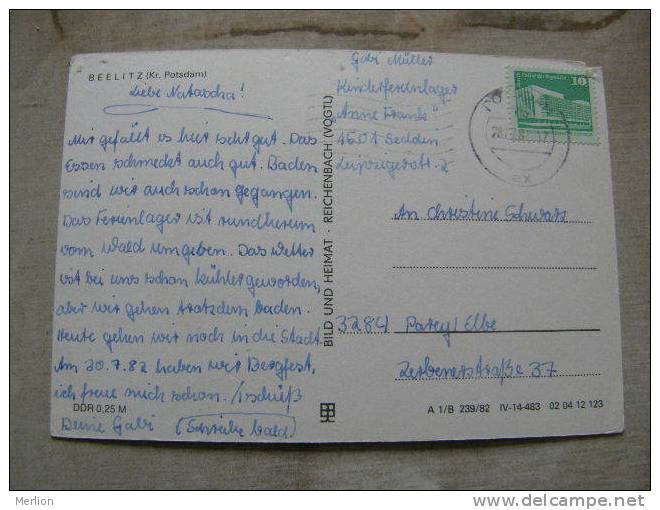 BEELITZ (Kr. Potsdam)
Liebe Natascha!
Mir gefällt es hier sehr gut. Das
Essen schmeckt auch gut. Baden
sind wir auch schon gegangen.
Das Ferienlager ist rundherum
vom Wald umgeben. Das Wetter
ist bei uns schon kühler geworden,
aber wir gehen trotzdem baden.
Heute gehen wir noch in die Stadt.
Am 30.7.82 haben wir Bergfest,
ich freue mich schon. Tschüß
DDR 0,25 M
Deine Gabi (Schreibe bald)
BILD UND HEIMAT · REICHENBACH (VOGTL)
Gabi Müller
Kinderferienlager
"Anne Frank"
1501 Seddin
Leipzigerstr. 2
10
An Christine Schwarz
3284 Parey/Elbe
Zerbenerstraße 37
A 1/B 239/82 IV-14-483 02 04 12 123
Merlion
http://www.delcampe.net